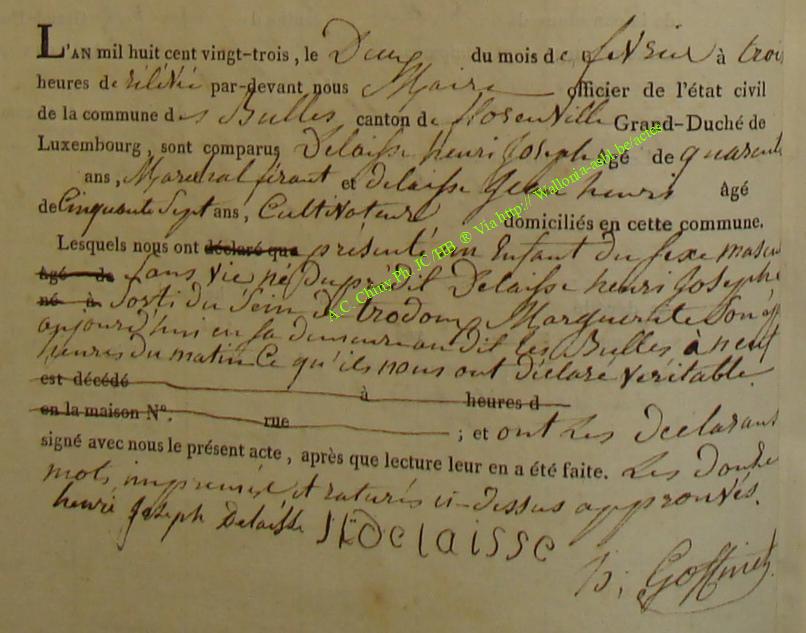 L'AN mil huit cent vingt-trois, le Deux du mois de fevrier à trois
heures de rélévée par-devant nous Maire officier de l'état civil
de la commune des Bulles canton de florenville Grand-Duché de
Luxembourg, sont comparus Delaisse henri Joseph Agé de quarante
ans, Marechal férant et delaisse Jean henri âgé
de Cinquante Sept ans, Cultivateur domiciliés en cette commune.
Lesquels nous ont déclaré que présenté un Enfant du sexe mascu
âgé de Sans Vie né du prédit Delaisse henri Joseph
né à Sorti du Sein de trodoux Marguerite Son
aujourd'hui en sa demeure au dit les Bulles à neuf
heures du matin Ce qu'ils nous ont déclaré véritable.
est décédé à heures d
en la maison N°. rue ; et ont Les Déclarant
signé avec nous le présent acte, après que lecture leur en a été faite. Les douze
mots imprimés et raturés ci-dessus approuvés.
henri Joseph Delaisse JhDelaisse
h; Goffinet
A.C. Chiny Ph. JC / HB ® Via http:// Wallonia-asbl.be/actes